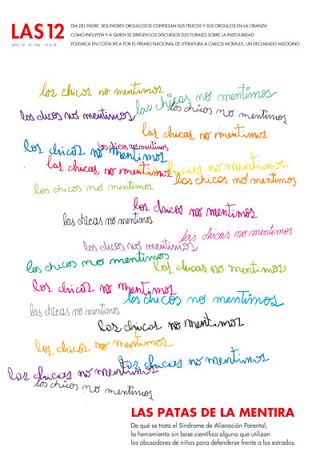 LAS12
DIA DEL PADRE: SEIS PADRES ORGULLOSOS CONFIESAN SUS TRUCOS Y SUS ORGULLOS EN LA CRIANZA
COMO INFLUYEN Y A QUIEN SE DIRIGEN LOS DISCURSOS ELECTORALES SOBRE LA INSEGURIDAD
POLEMICA EN COSTA RICA POR EL PREMIO NACIONAL DE LITERATURA A CARLOS MORALES, UN DECLARADO MISOGINO
los chicos no mentimos
las chicas no mentimos
los chicos no mentimos
los chicos no mentimos
las chicas no mentimos
los chicos no mentimos
los chicos no mentimos
las chicas no mentimos
los chicos no mentimos
los chicos no mentimos
los chicos no mentimos
los chicos no mentimos
las chicas no mentimos
las chicas no mentimos
los chicos no mentimos
los chicos no mentimos
las chicas no mentimos
los chicos no mentimos
los chicos no mentimos
las chicas no mentimos
los chicos no mentimos
los chicos no mentimos
las chicas no mentimos
las chicas no mentimos
los chicos no mentimos
LAS PATAS DE LA MENTIRA
De qué se trata el Síndrome de Alienación Parental,
la herramienta sin base científica alguna que utilizan
los abusadores de niños para defenderse frente a los estrados.